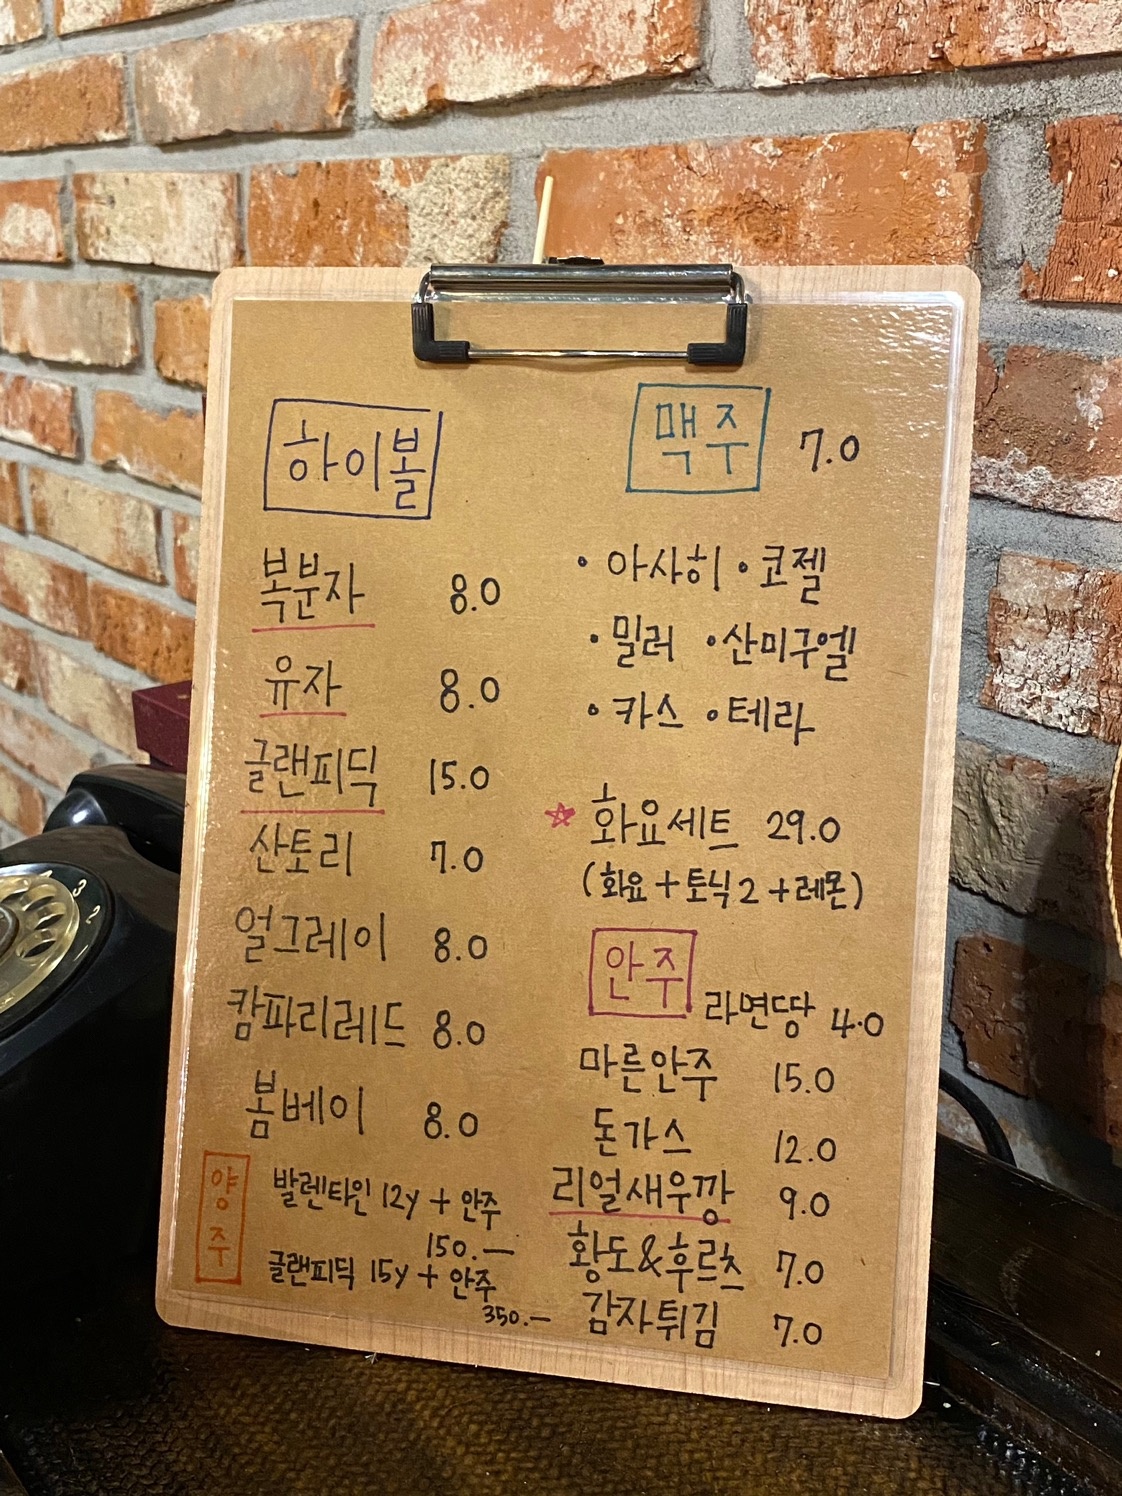 하이볼
복분자 8.0
유자 8.0
글랜피딕 15.0
산토리 7.0
얼그레이 8.0
캄파리레드 8.0
봄베이 8.0
양주
발렌타인 12y + 안주
150.—
글랜피딕 15y + 안주
350.—
맥주 7.0
• 아사히 • 코젤
• 밀러 • 산미구엘
• 카스 • 테라
☆ 화요세트 29.0
(화요 + 토닉2 + 레몬)
안주
라면땅 4.0
마른안주 15.0
돈가스 12.0
리얼새우깡 9.0
황도&후르츠 7.0
감자튀김 7.0
3
2